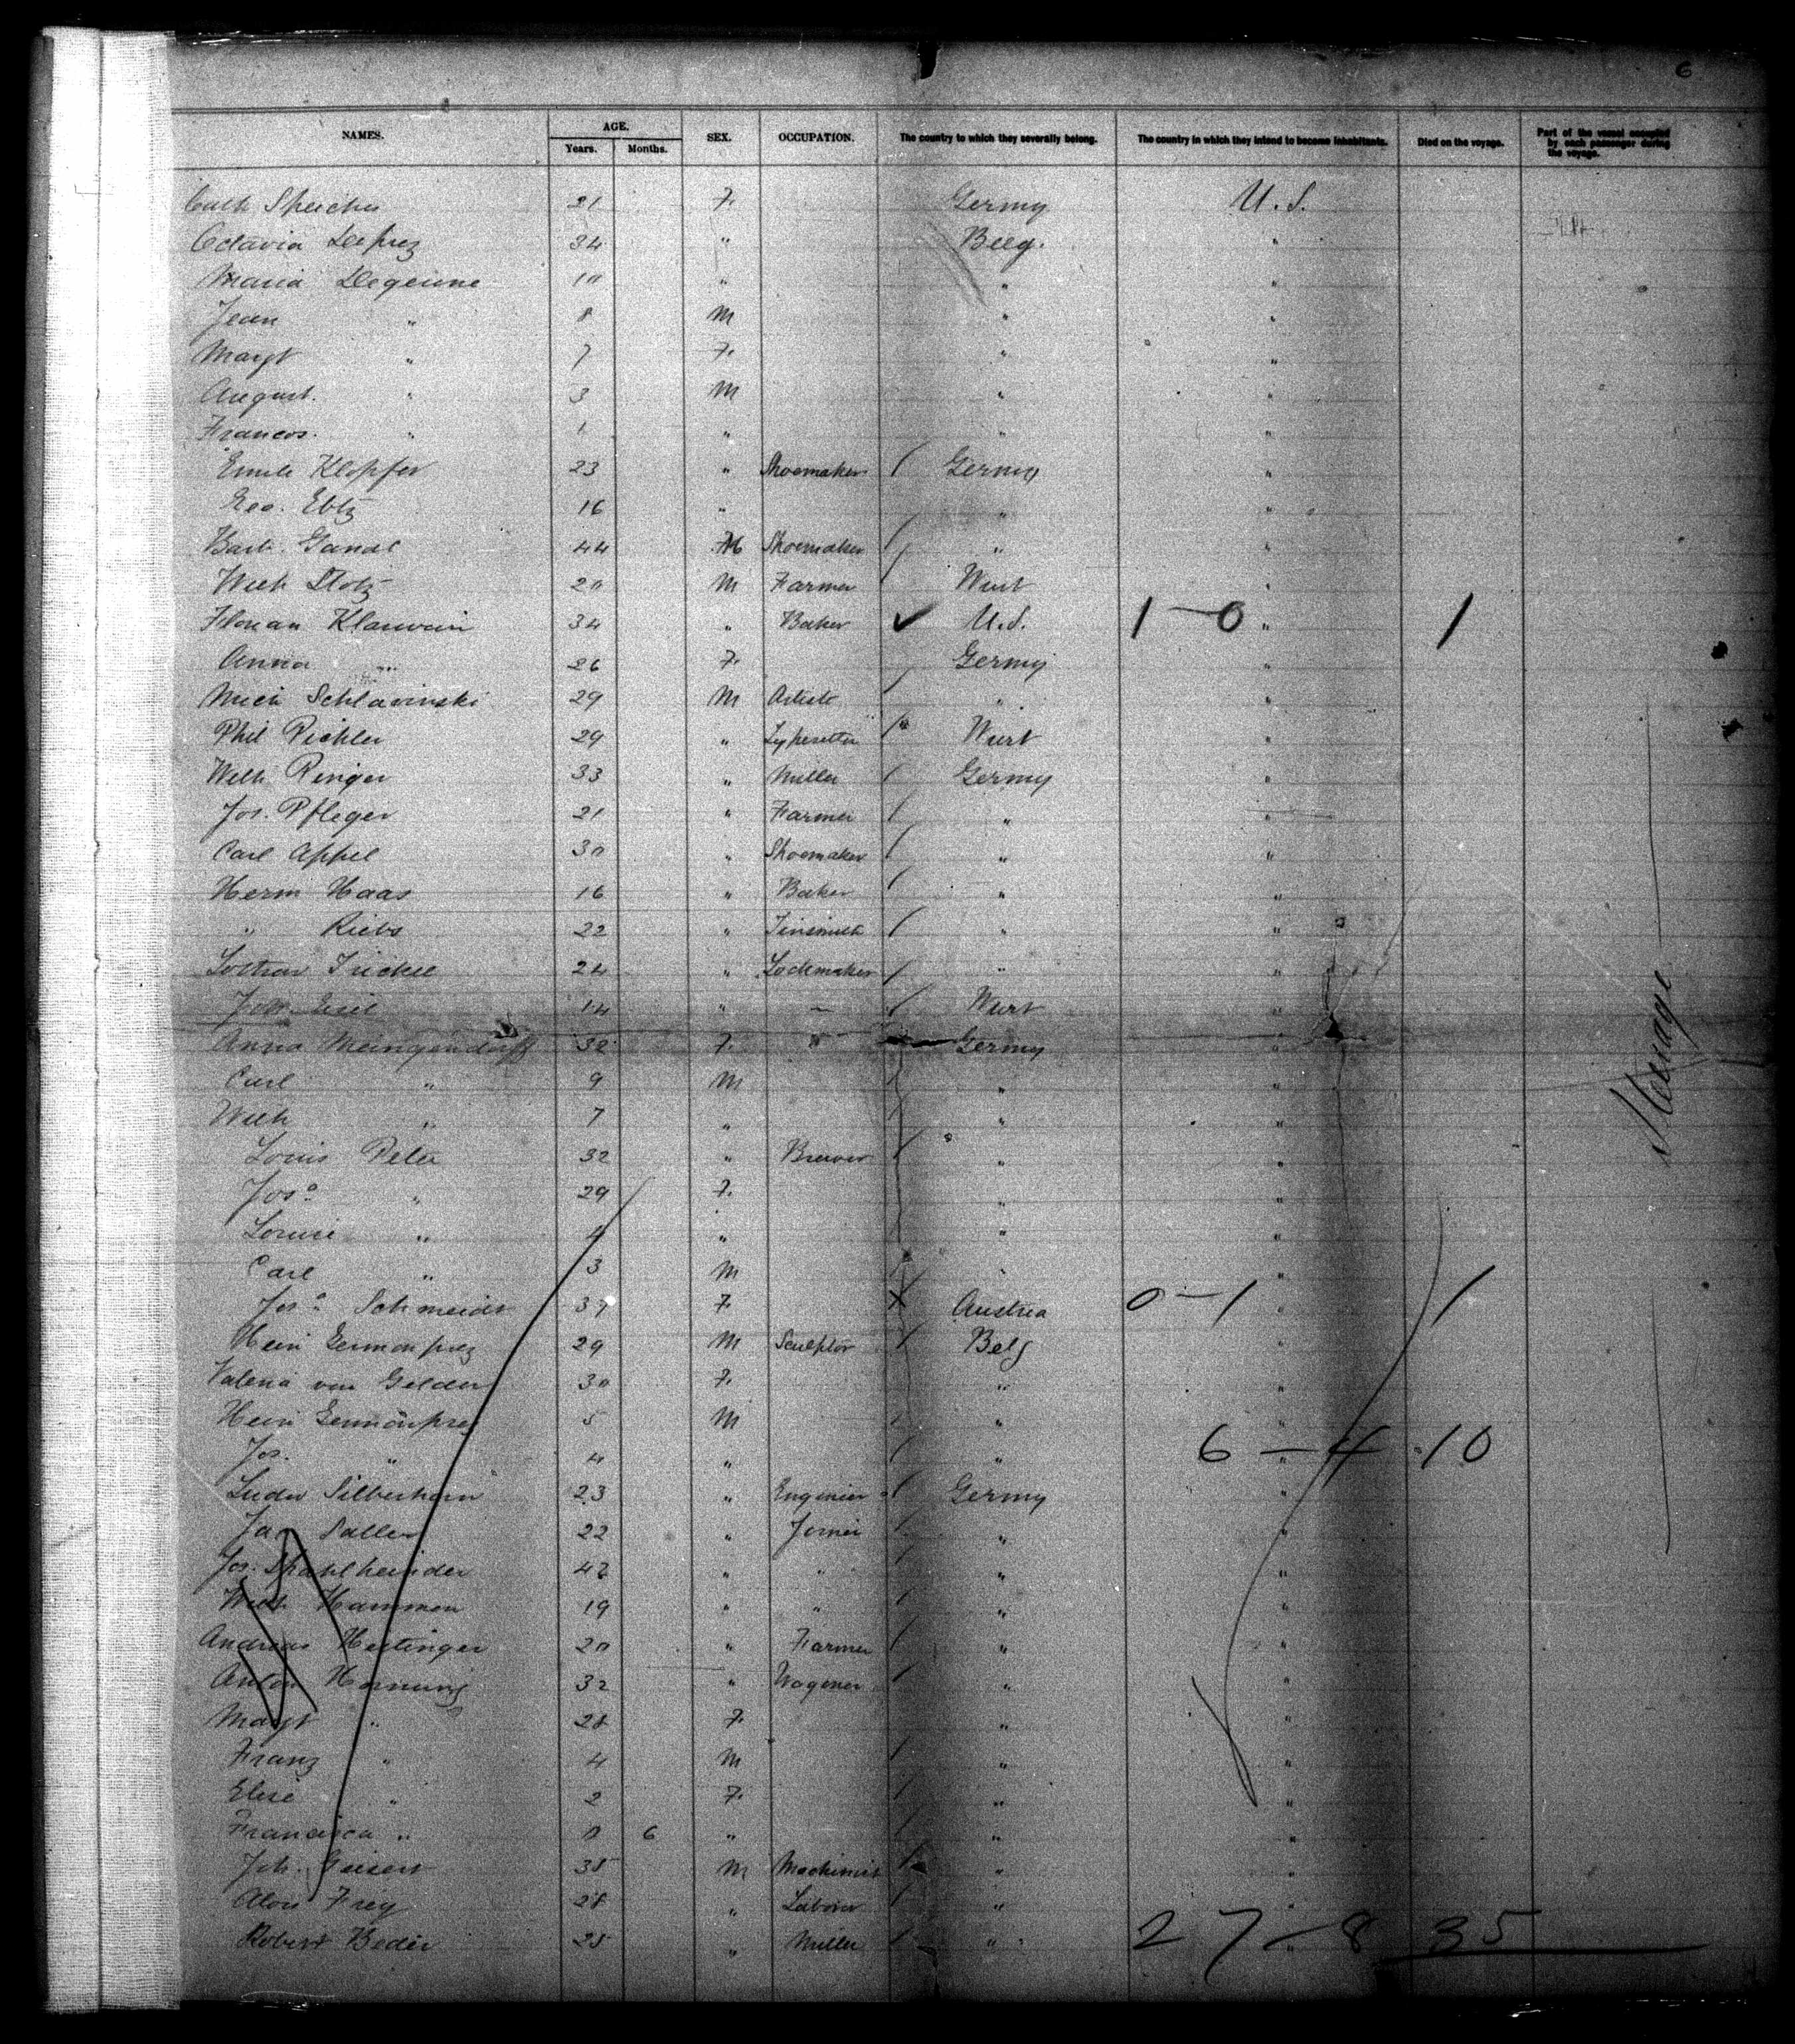 6
NAMES. AGE. SEX. OCCUPATION. The country to which they severally belong. The country in which they intend to become inhabitants. Died on the voyage. Part of the vessel occupied by each passenger during the voyage.
Years. Months.
Cath Speicher 21 F. Germy U.S.
Octavia Deprez 34 " Belg. "
Maria Degeune 10 " " "
Jean " 8 M " "
Margt " 7 F. " "
August. " 3 M " "
Francos. " 1 " " "
Emile Klopfer 23 " Shoemaker Germy "
Geo. Ebtz 16 " " "
Bart. Gandl 44 M Shoemaker " "
Wilh Stotz 20 M Farmer Wurt "
Florian Klauvein 34 " Baker U.S. 1 - 0 " 1
Anna " 26 F. Germy "
Mich Schlavinski 29 M Artiste " "
Phil Pichler 29 " Typesetter Wurt "
Wilh Ringer 33 " Miller Germy "
Jos. Pfleger 21 " Farmer " "
Carl Appel 30 " Shoemaker " "
Herm Haas 16 " Baker " "
" Riebs 22 " Tinsmith " "
Lothar Trickel 24 " Lockmaker " "
14 " - Wurt "
Anna Meingendorff 32 F. " Germy "
Carl " 9 M " "
Wilh " 7 " " "
Louis Peter 32 " Brewer " "
Josa " 29 F. " "
Louise " 4 " " "
Carl " 3 M " "
Josa Schmeidt 37 F. Austria 0 - 1 " 1
Hein Germonprez 29 M Sculptor Belg "
Valena van Gelder 30 F. " "
Hein Germonprez 5 M " "
Jos. " 4 " " 6 - 4 10
Ludw Silberhorn 23 " Engenier Germy "
Jac Saller 22 " Joiner " "
Jos. 42 " " " "
Wilh Hammen 19 " " " "
Andreas Hertinger 20 " Farmer " "
Anton Hornung 32 " Wagoner " "
Margt " 28 F. " "
Franz " 4 M " "
Elise " 2 F. " "
Francisca " 0 6 " " "
Joh. Geisert 35 M Machinist " "
Alois Frey 28 " Laborer " "
Robert Beder 25 " Miller " 27 - 8 35
Steerage